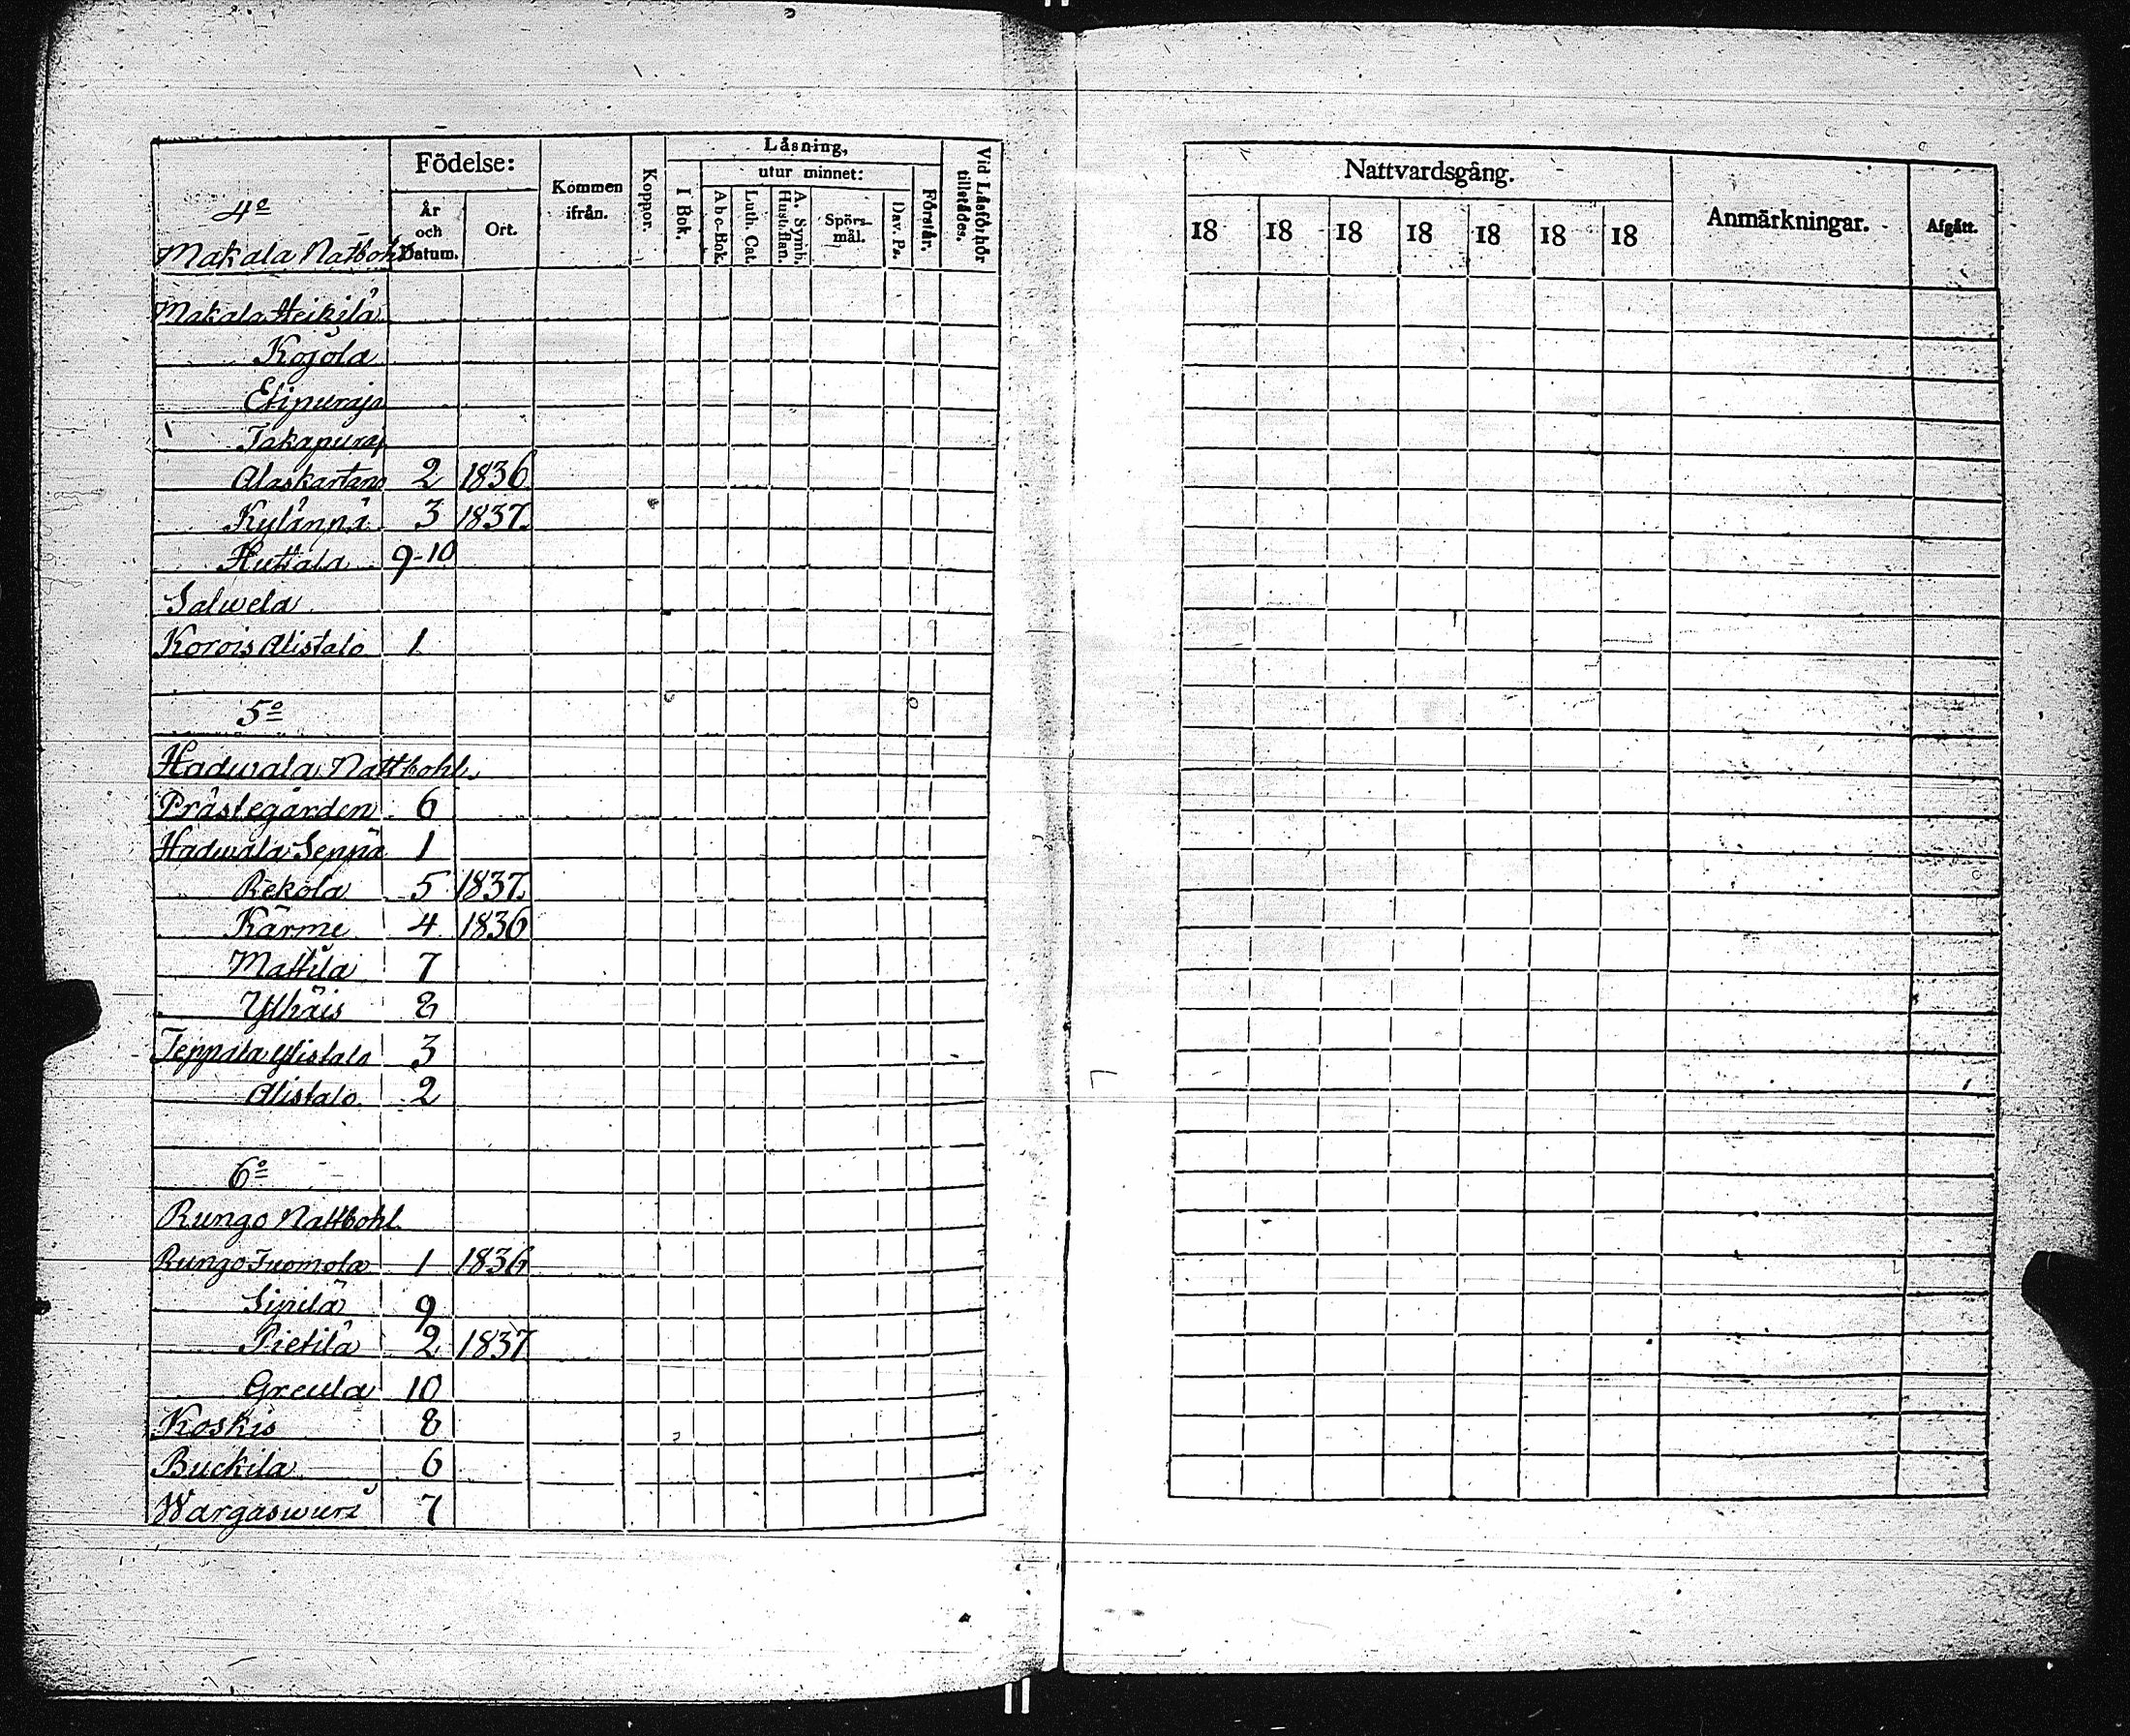 4o
Makala Nattbohl
Födelse:
År och Datum.
Ort.
Kommen ifrån.
Koppor.
Läsning,
I Bok.
utur minnet:
Abc-Bok.
Luth. Cat.
A. Symb. Hust.tafl.
Spörs-mål.
Dav. Ps.
Förstår.
Vid Läsförhör tillstädes.
Nattvardsgång.
18 18 18 18 18 18 18
Anmärkningar.
Afgått.
Makala Heikilä
Kojola
Etipuraja
Takapuraj
Alaskartano 2 1836
Kylänpä 3 1837.
Huttala 9-10
Salwela
Korois Alistalo 1.
5o
Hadwala Nattbohl.
Prästegården 6
Hadwala Seppä 1
Rekola 5 1837.
Kärme 4 1836
Mattila 7
Ylhäis 8
Teppala Ylistalo 3
Alistalo 2
6o
Rungo Nattbohl.
Rungo Tuomola 1 1836
Sipilä 9
Pietilä 2 1837
Greula 10
Koskis 8
Buckila 6
Wargaswuri 7